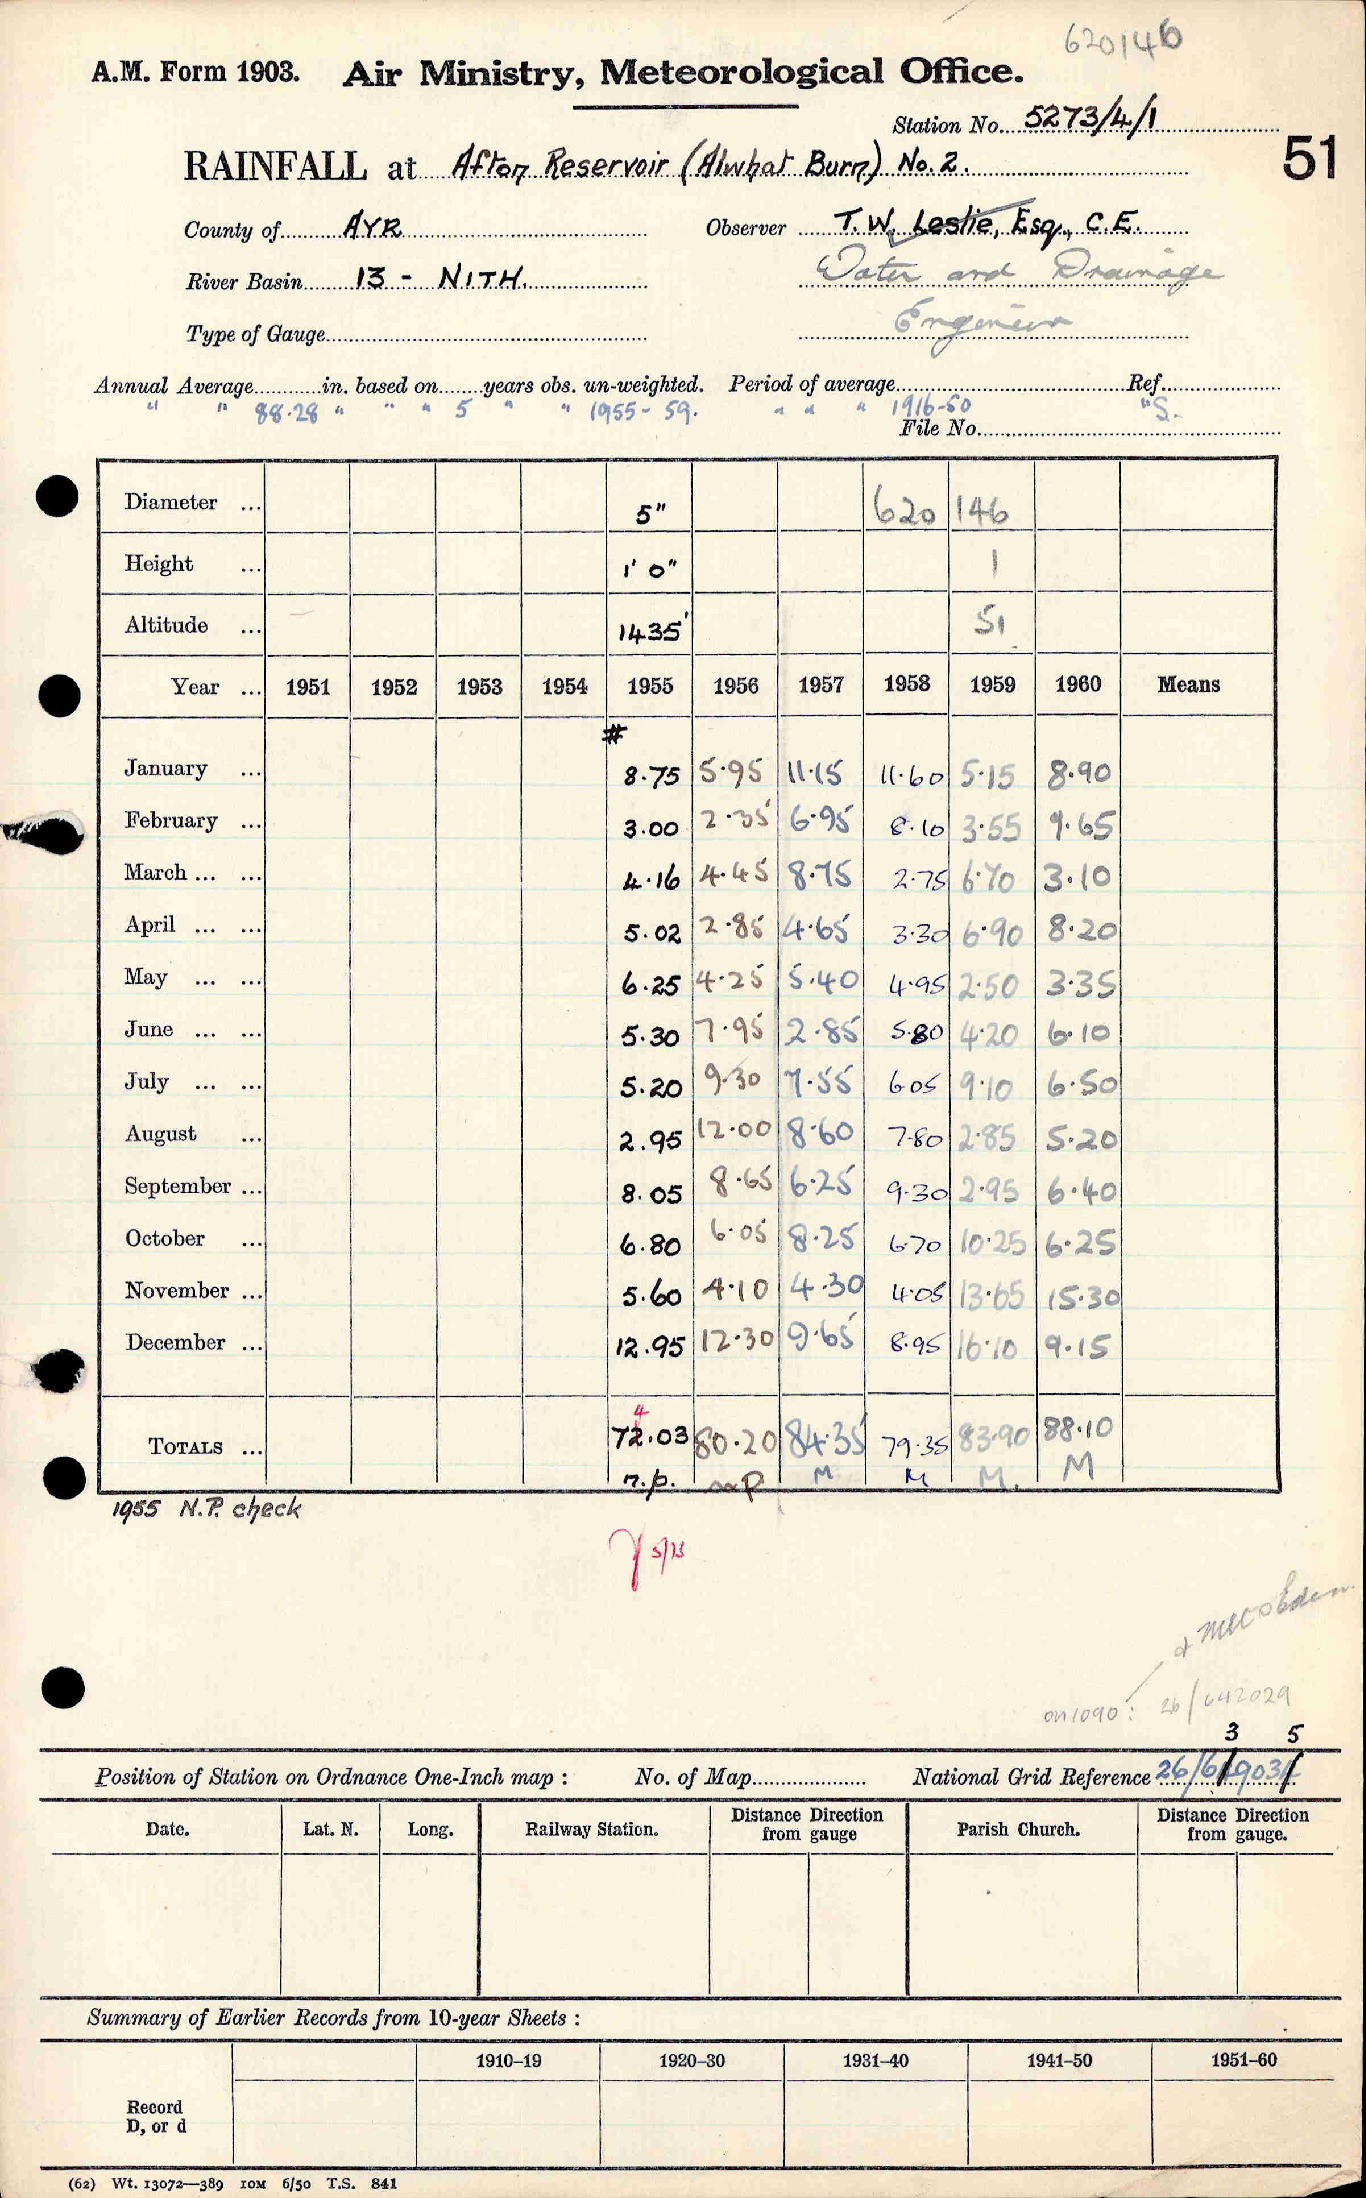 620146
A.M. Form 1903. Air Ministry, Meteorological Office.
Station No. 5273/4/1
51
RAINFALL at Afton Reservoir (Alwhat Burn) No. 2.
County of AYR Observer T. W. Leslie, Esq., C.E.
River Basin 13 - NITH. Water and Drainage
Type of Gauge Engineer
Annual Average in. based on years obs. un-weighted. Period of average Ref.
" " 88.28 " " " 5 " " 1955-59. " " " 1916-50 "S.
File No.
Diameter ... 5" 620 146
Height ... 1' 0" 1
Altitude ... 1435' 51
Year ... 1951 1952 1953 1954 1955 1956 1957 1958 1959 1960 Means
#
January ... 8.75 5.95 11.15 11.60 5.15 8.90
February ... 3.00 2.35 6.95 8.10 3.55 9.65
March ... ... 4.16 4.45 8.75 2.75 6.70 3.10
April ... ... 5.02 2.85 4.65 3.30 6.90 8.20
May ... ... 6.25 4.25 5.40 4.95 2.50 3.35
June ... ... 5.30 7.95 2.85 5.80 4.20 6.10
July ... ... 5.20 9.30 7.55 6.05 9.10 6.50
August ... 2.95 12.00 8.60 7.80 2.85 5.20
September ... 8.05 8.65 6.25 9.30 2.95 6.40
October ... 6.80 6.05 8.25 6.70 10.25 6.25
November ... 5.60 4.10 4.30 4.05 13.65 15.30
December ... 12.95 12.30 9.65 8.95 16.10 9.15
4
TOTALS ... 72.03 80.20 84.35 79.35 83.90 88.10
n.p. np M M M. M
1955 N.P. check
5/73
on 1090: 26/642029
3 5
Position of Station on Ordnance One-Inch map : No. of Map National Grid Reference 26/6 903
Date. Lat. N. Long. Railway Station. Distance Direction from gauge Parish Church. Distance Direction from gauge.
Summary of Earlier Records from 10-year Sheets :
1910-19 1920-30 1931-40 1941-50 1951-60
Record
D, or d
(62) Wt. 13072—389 10M 6/50 T.S. 841